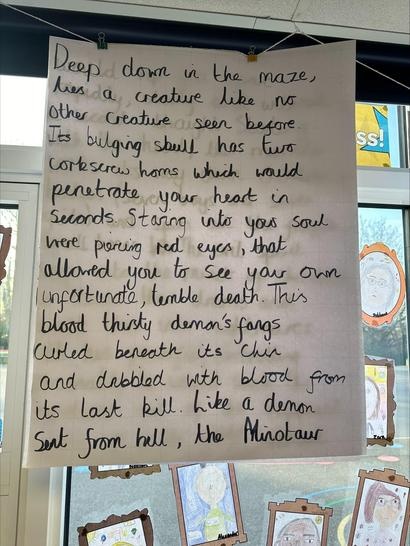 Deep down in the maze,
lies a creature like no
other creature seen before.
Its bulging skull has two
corkscrew horns which would
penetrate your heart in
seconds. Staring into your soul
were piercing red eyes, that
allowed you to see your own
unfortunate, terrible death. This
blood thirsty demon's fangs
curled beneath its chin
and dribbled with blood from
its last kill. Like a demon
sent from hell, the Minotaur
ss!